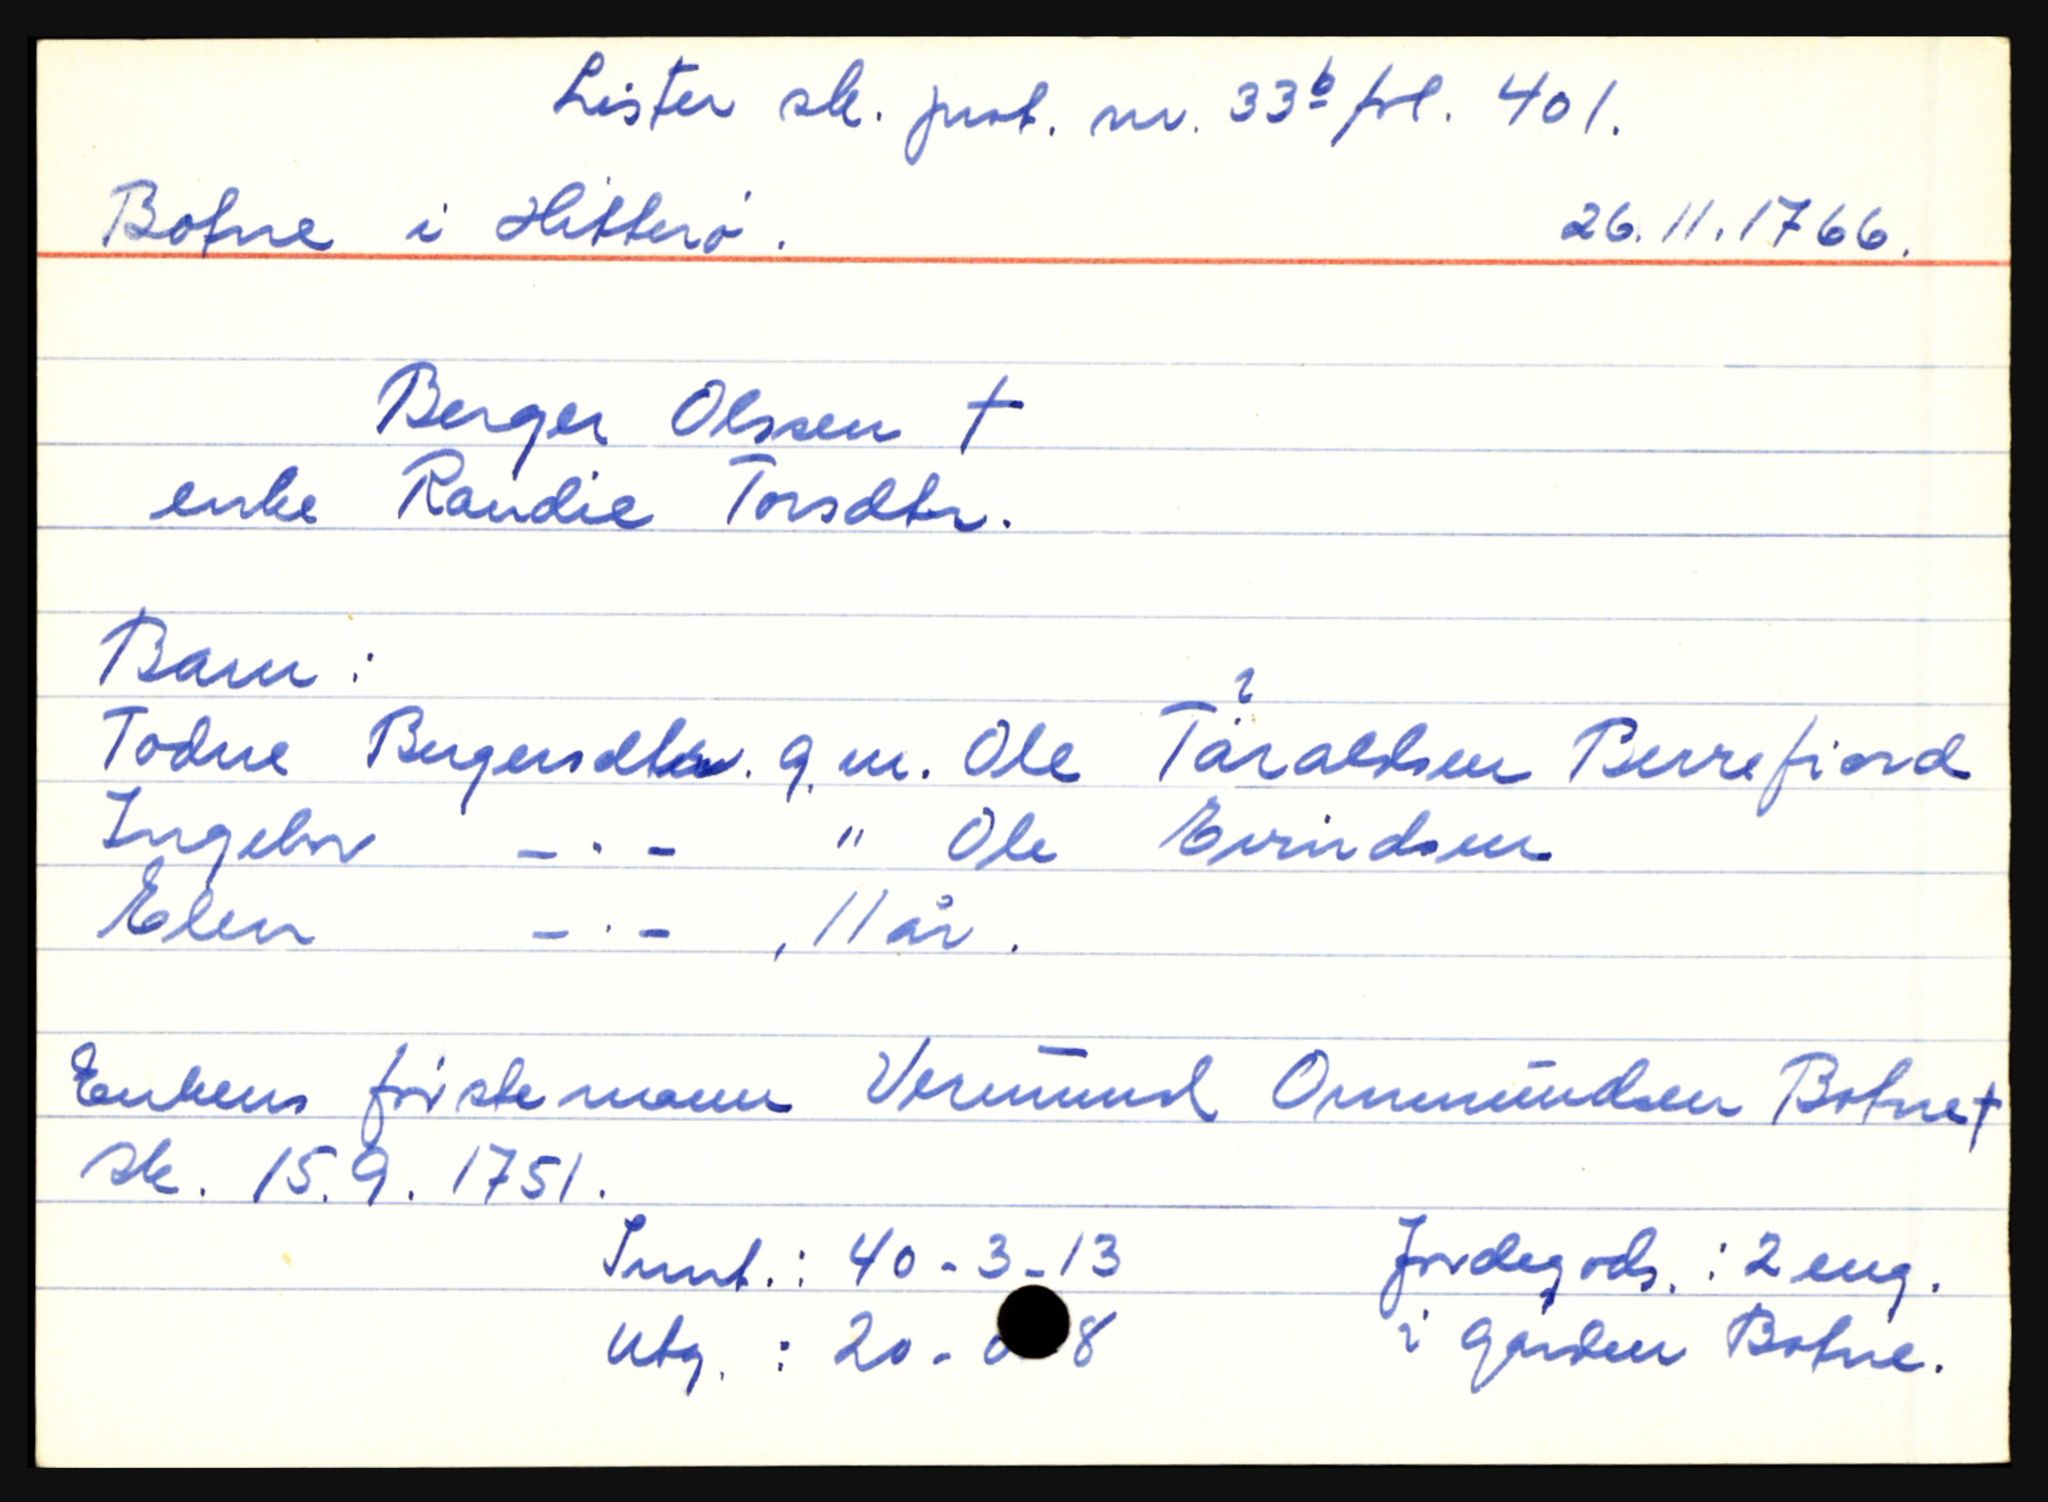 Lister sk. prot. nr. 33b fol. 401.
Botne i Hitterø. 26.11.1766.
Berger Olssen †
enke Randie Torsdtr.
Barn:
?
Todne Bergersdtr. g.m. Ole Tåraldsen Berrefiord
Ingebor -·- " Ole Evindsen
Elen -·- , 11 år.
Enkens første mann Vermund Ommundsen Botne †
sk. 15.9.1751.
Innt.: 40-3-13 Jordegods.: 2 eng.
Utg.: 20-0-8 i garden Botne.